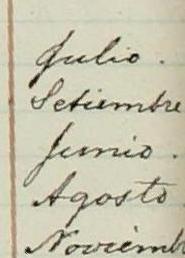 Julio.
Setiembre
Junio.
Agosto
Noviemb